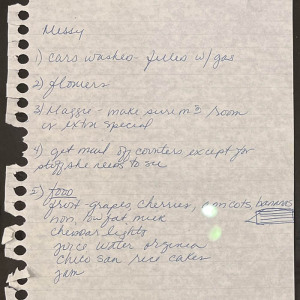 Messy
1) cars washed - filled w/ gas
2) flowers
3) Maggie - make sure m3 room
is extra special
4) get mail off counters except for
stuff she needs to see
5) food
fruit - grapes cherries, apricots bananas
non, low fat milk
cheddar lights
juice water
Chico san rice cakes
jam